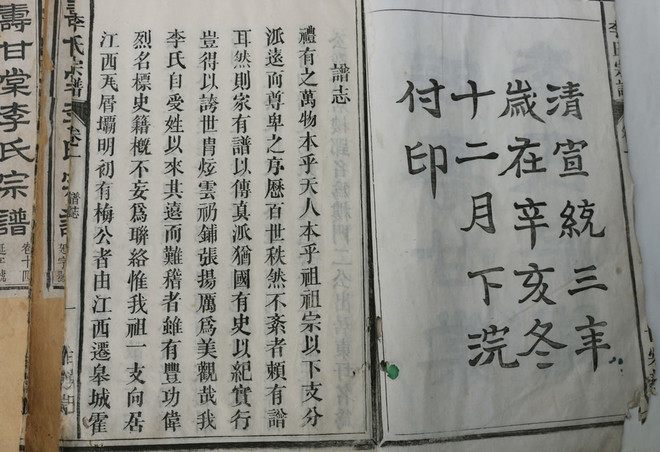 李氏宗譜
清宣統三年
歲在辛亥冬
十二月下浣
付印
譜志
禮有之萬物本乎天人本乎祖祖宗以下支分
派遠而尊卑之序歷百世秩然不紊者賴有譜
耳然則家有譜以傳真派猶國有史以紀實行
豈得以誇世胄炫雲礽鋪張揚厲爲美觀哉我
李氏自受姓以來其遠而難稽者雖有豐功偉
烈名標史籍槪不妄爲聯絡惟我祖一支向居
江西瓦屑壩明初有梅公者由江西遷皋城霍
李氏宗譜
卷一
譜誌
一
壽甘棠李氏宗譜
卷十四